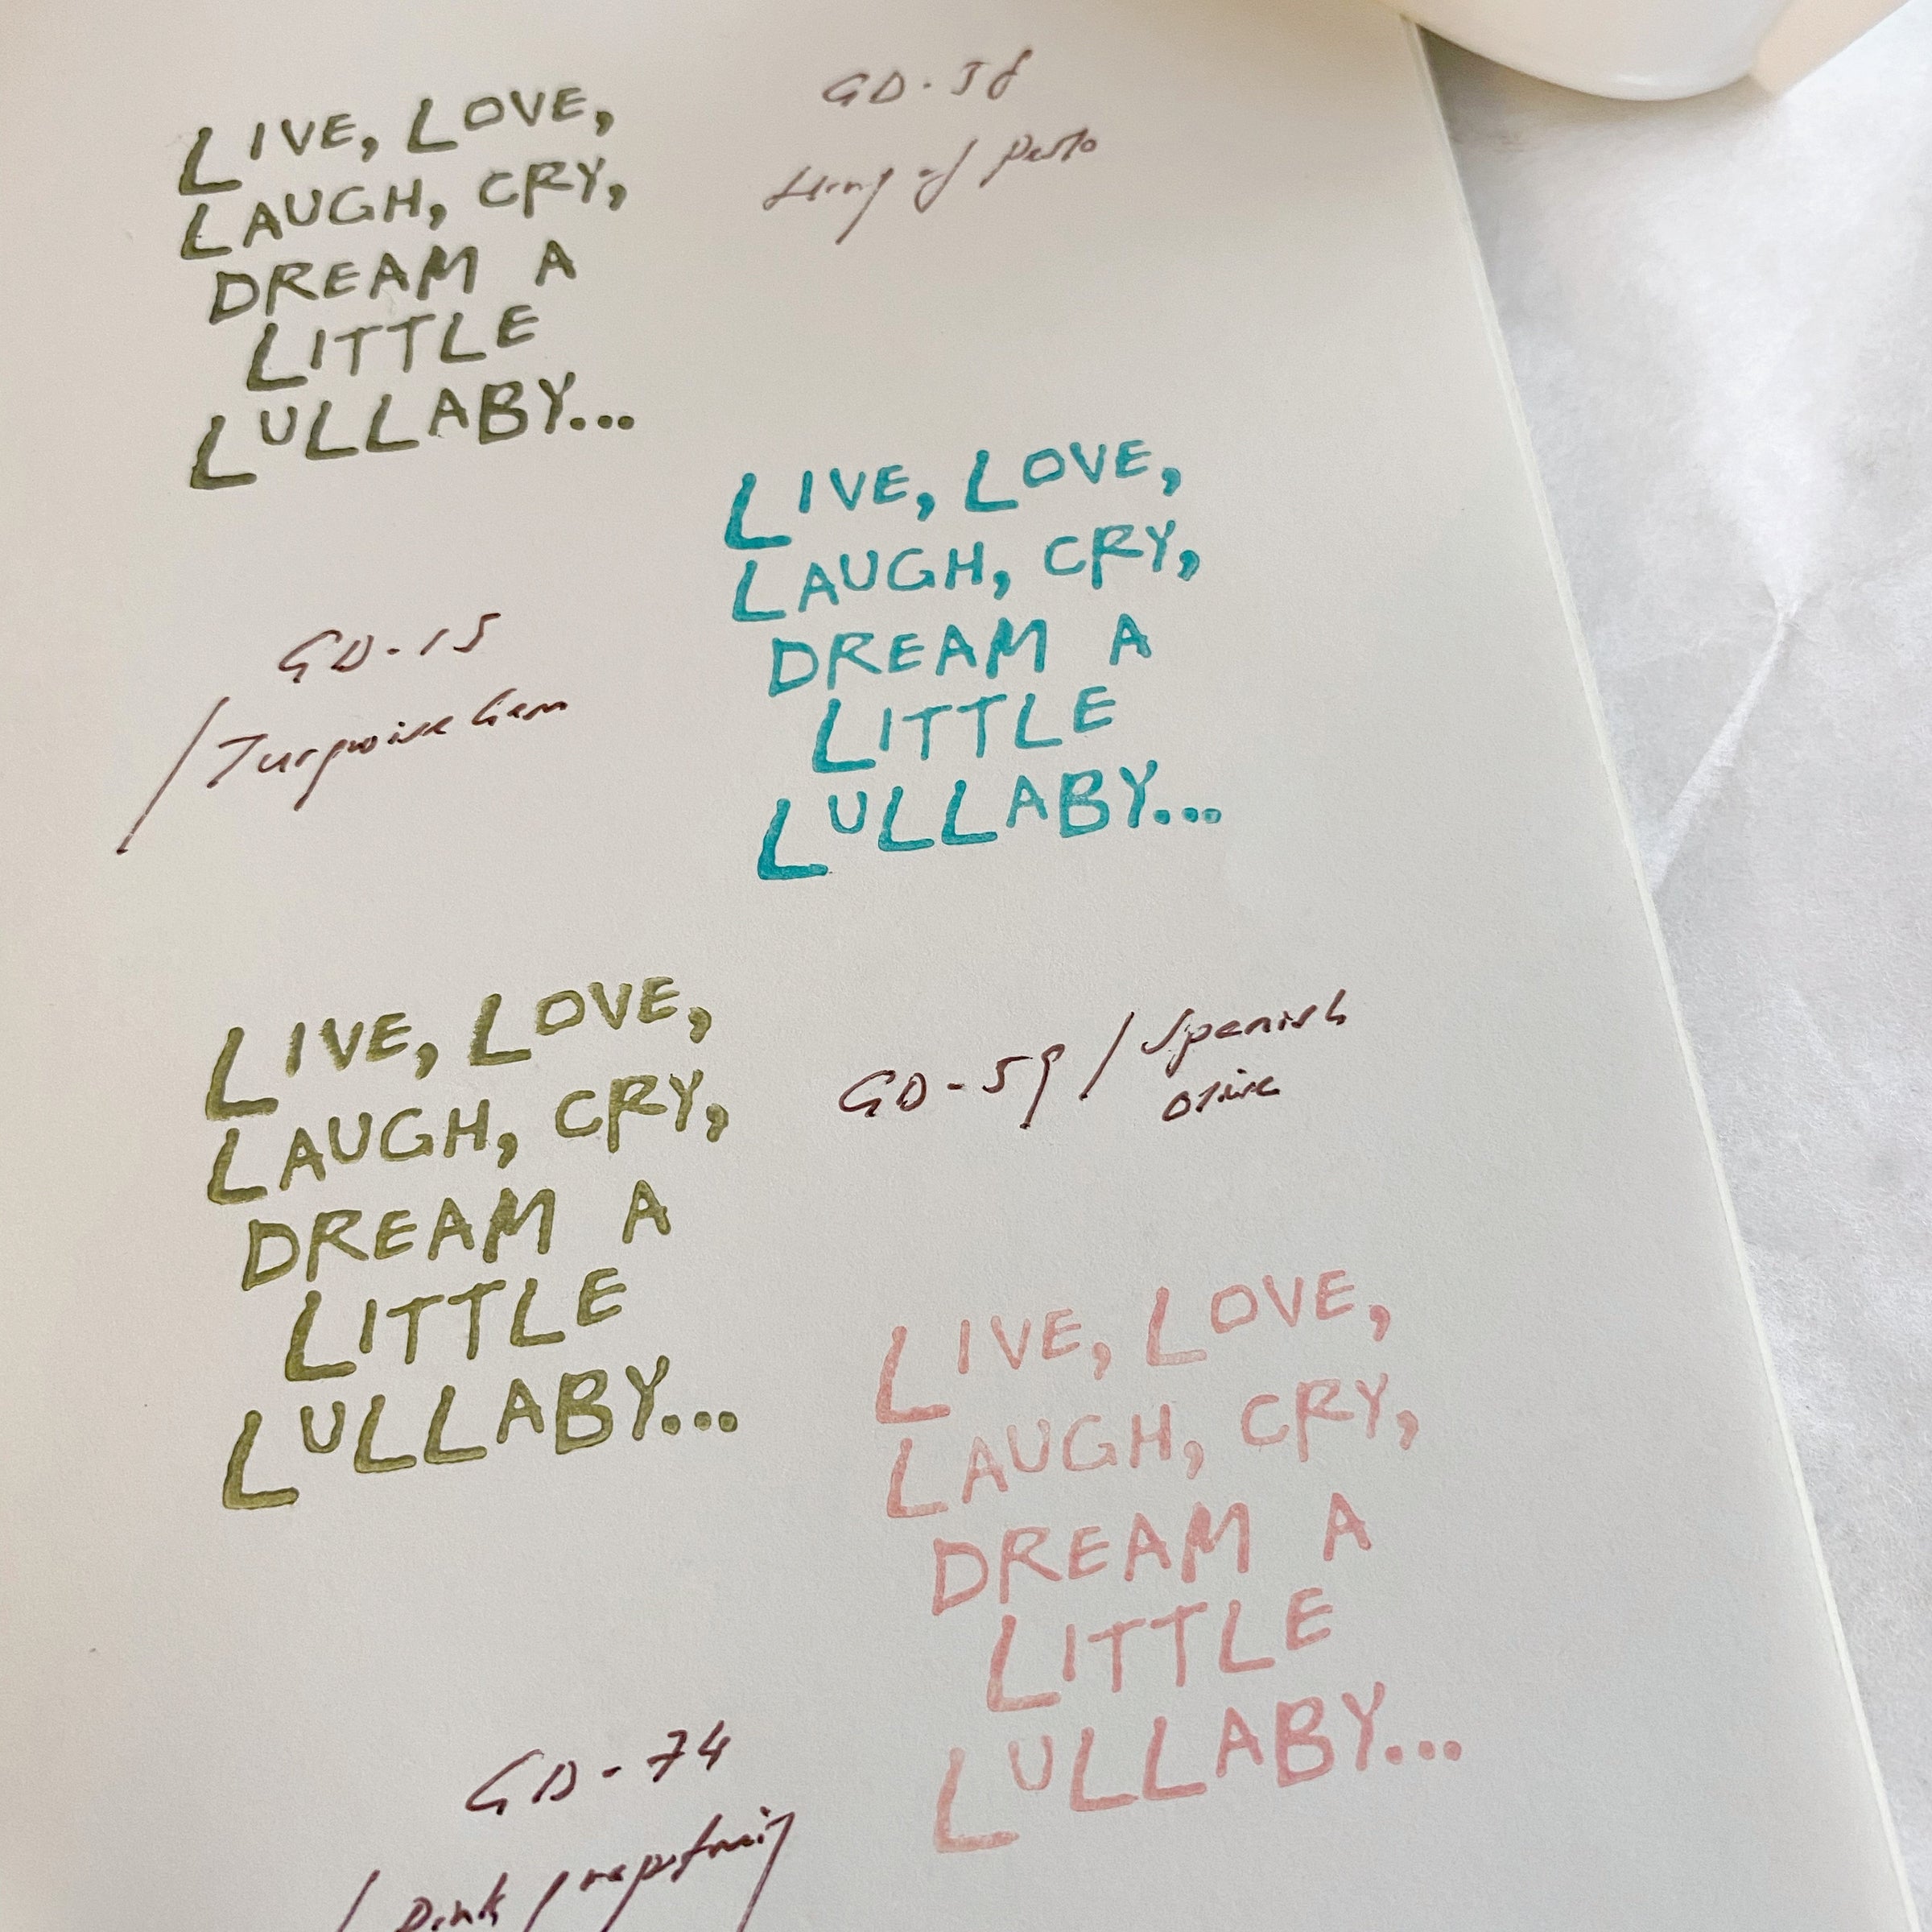 LIVE, LOVE,
LAUGH, CRY,
DREAM A
LITTLE
LULLABY...
GD-58
of Pesto
LIVE, LOVE,
LAUGH, CRY,
DREAM A
LITTLE
LULLABY...
GD-15
/ Turquoise Gem
LIVE, LOVE,
LAUGH, CRY,
DREAM A
LITTLE
LULLABY...
GD-59 / Spanish
olive
LIVE, LOVE,
LAUGH, CRY,
DREAM A
LITTLE
LULLABY...
GD-74
/ Pink grapefruit